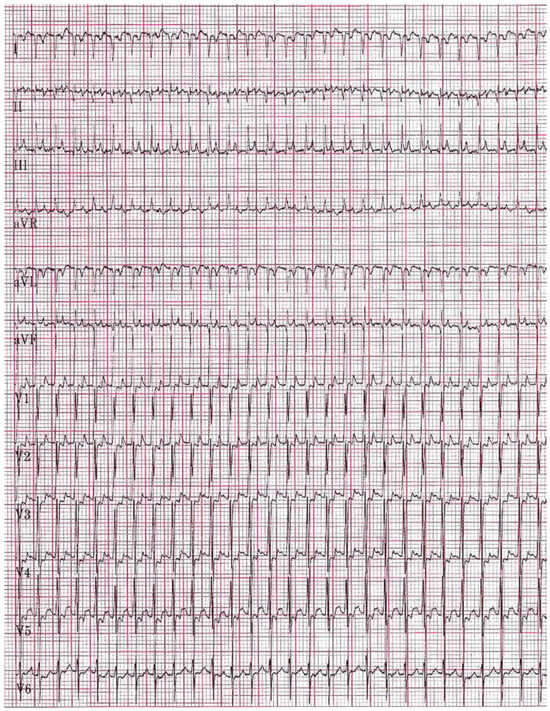 I
II
III
aVR
aVL
aVF
V1
V2
V3
V4
V5
V6